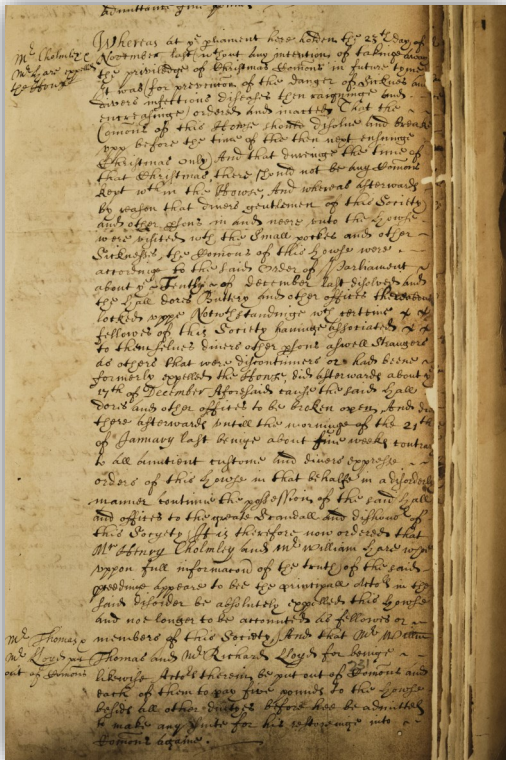 Whereas at ye pliament here holden the 23th day of
Mr Cholmley &
Mr Hare expelled
the Howse
November last wthout any intention of takinge away
the priviledge of Christmas Comons in future tyme
It was for prevention of the danger of Sicknes and
divers infectious diseases then raigninge and
encreasinge ordered and inacted That the
Comons of this Howse should disolve and breake
upp before the tyme of the then next ensuinge
Christmas only And that duringe the tyme of
that Christmas there should not be any Comons
kept wthin the Howse, And whereas afterwards
by reason that divers gentlemen of this Society
and other psons in and neere unto the Howse
were visited wth the Small pockes and other
Sicknesses the Comons of this Howse were
accordinge to the said Order of Parliament
about ye of december last disolved and
the Hall dores Buttry and other offices
locked uppe Notwthstandinge wch certeine
fellowes of this Society havinge associated
to themselves divers other psons aswell straugers
as others that were discontinuers or had beene
formerly expelled the Howse, did afterwards about
17th of December aforesaid cause the said Hall
dores and other offices to be broken open, And did
there afterwards untill the morninge of the 21th
of January last beinge about five weeks contrary
to all auntient custome and divers expresse
orders of this Howse in that behalfe in a disorderly
manner continue the possession of the said Hall
and offices to the greate Scandall and dishonr of
this Society It is therefore now ordered that
Mr Henry Cholmley and Mr William Hare whoe
uppon full informacion of the truth of the said
pceedings appeare to bee the principall Actors in the
said disorder be absolutely expelled this Howse
and noe longer to be accounted as fellowes or
Mr Thomas &
Mr Lloyd put
out of Comons
members of this Society, And that Mr
Thomas and Mr Richard Lloyd for beinge
likewise Actors therein be put out of Comons and
each of them to pay five pounds to the Howse
besids all other dueties before hee be admitted
to make any suite for his restoreinge into
Comons againe.